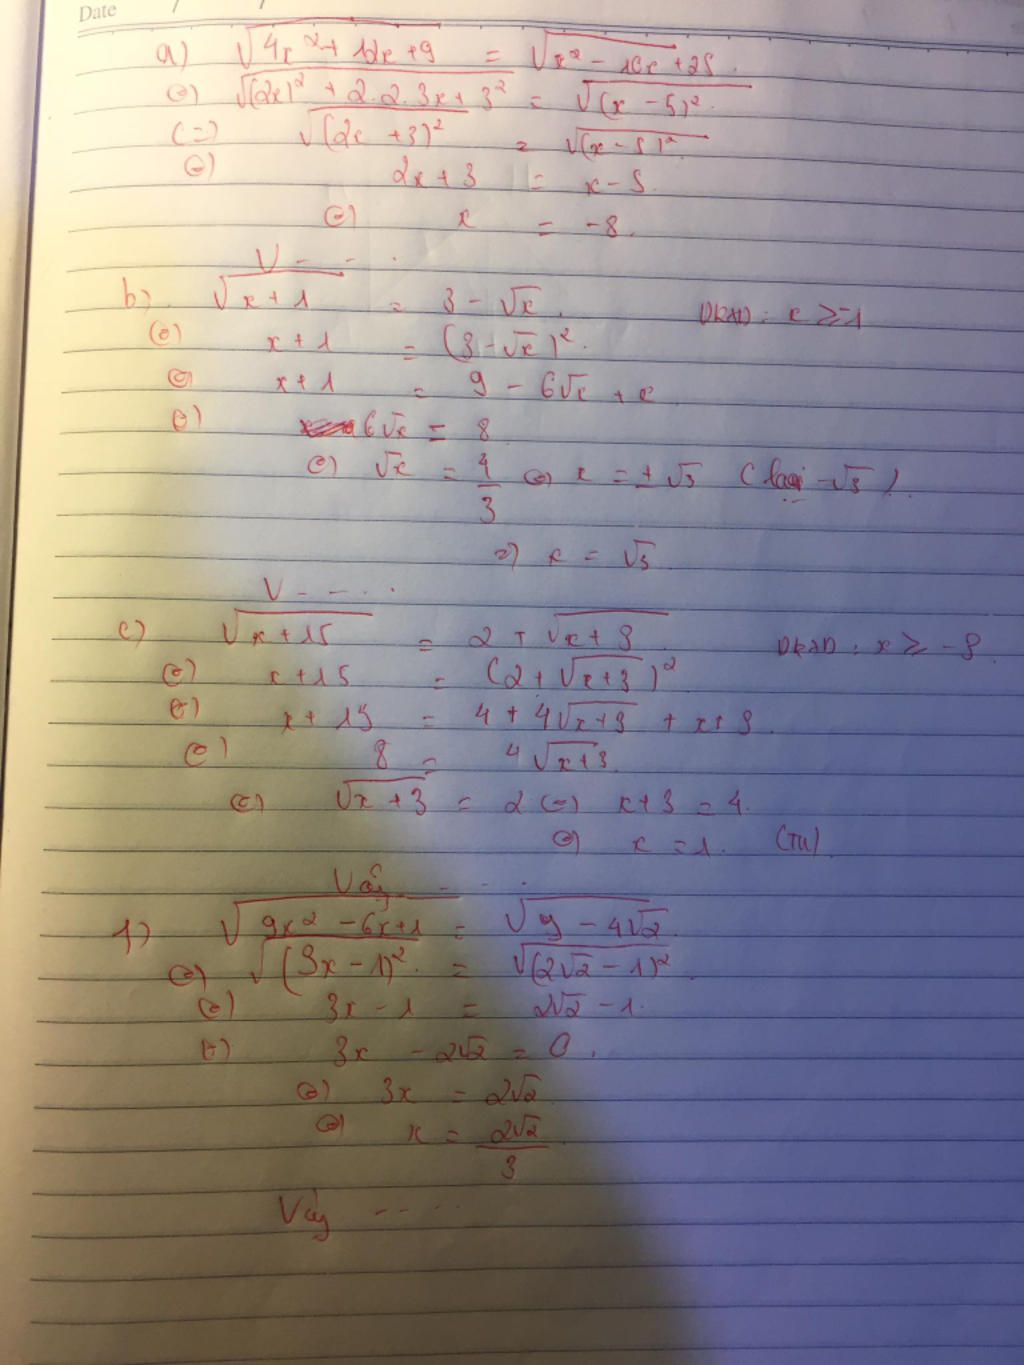 Date / /
a) √(4x² + 12x + 9) = √(x² - 10x + 25).
(=) √((2x)² + 2.2.3x + 3²) = √((x - 5)²).
(=) √((2x + 3)²) = √((x - 5)²).
(=) 2x + 3 = x - 5.
(=) x = -8.
V - - .
b) √(x + 1) = 3 - √x. ĐKXĐ: x ≥ -1
(=) x + 1 = (3 - √x)².
(=) x + 1 = 9 - 6√x + x
(=) 6√x = 8
(=) √x = 4/3 (=) x = ± √3 (loại -√3).
=) x = √3
V - - - .
c) √(x + 15) = 2 + √(x + 3) ĐKXĐ: x ≥ -3.
(=) x + 15 = (2 + √(x + 3))²
(=) x + 15 = 4 + 4√(x + 3) + x + 3.
(=) 8 = 4√(x + 3).
(=) √(x + 3) = 2 (=) x + 3 = 4.
(=) x = 1. (TM)
Vậy - - .
f) √(9x² - 6x + 1) = √(9 - 4√2).
(=) √((3x - 1)²) = √((2√2 - 1)²).
(=) 3x - 1 = 2√2 - 1.
(=) 3x - 2√2 = 0.
(=) 3x = 2√2
(=) x = 2√2/3
Vậy - - - -